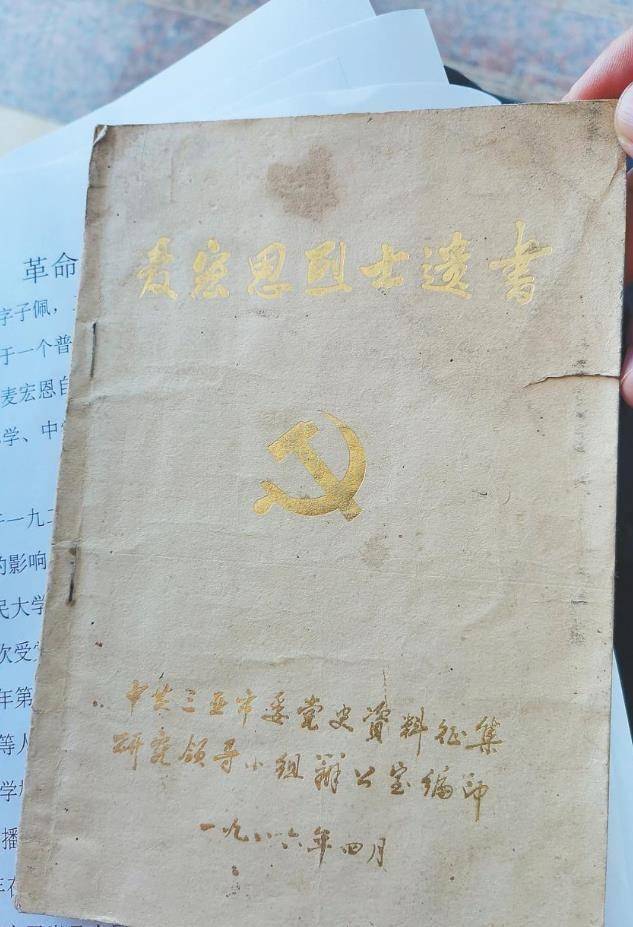 麦宏恩烈士遗書
中共三亚市委党史資料征集
研究领导小组辦公室编印
一九八六年四月
革命
字子佩，
于一个普
麦宏恩自
学、中
一九二
的影响
民大学
次受
年第
等人
学
播
在